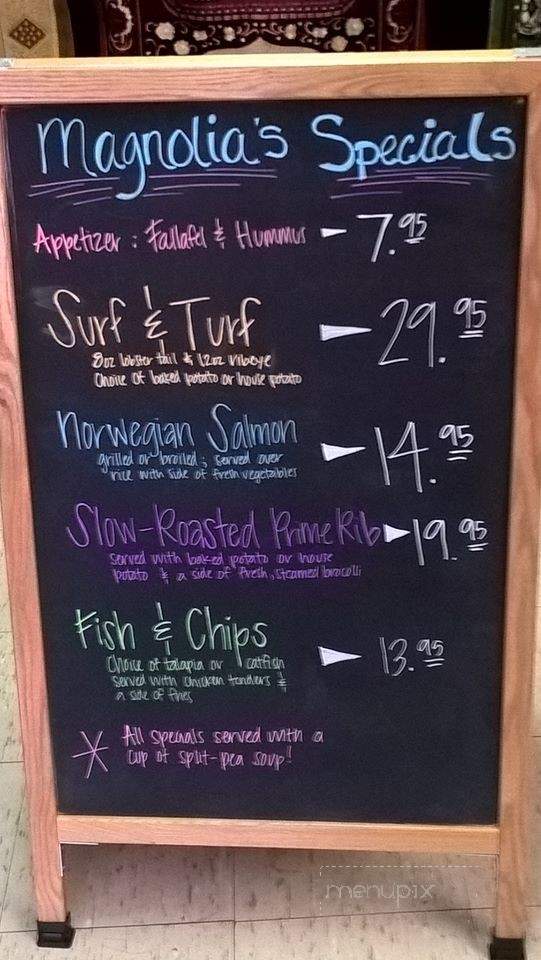 Magnolia's Specials
Appetizer : Fallafel & Hummus - 7.95
Surf & Turf - 29.95
8oz lobster tail & 12oz ribeye
Choice of baked potato or house potato
Norwegian Salmon - 14.95
grilled or broiled; served over
rice with side of fresh vegetables
Slow-Roasted Prime Rib - 19.95
Served with baked potato or house
potato & a side of fresh, steamed brocolli
Fish & Chips - 13.95
Choice of talapia or catfish
Served with chicken tenders &
a side of fries
* All specials served with a
cup of split-pea soup!
menupix